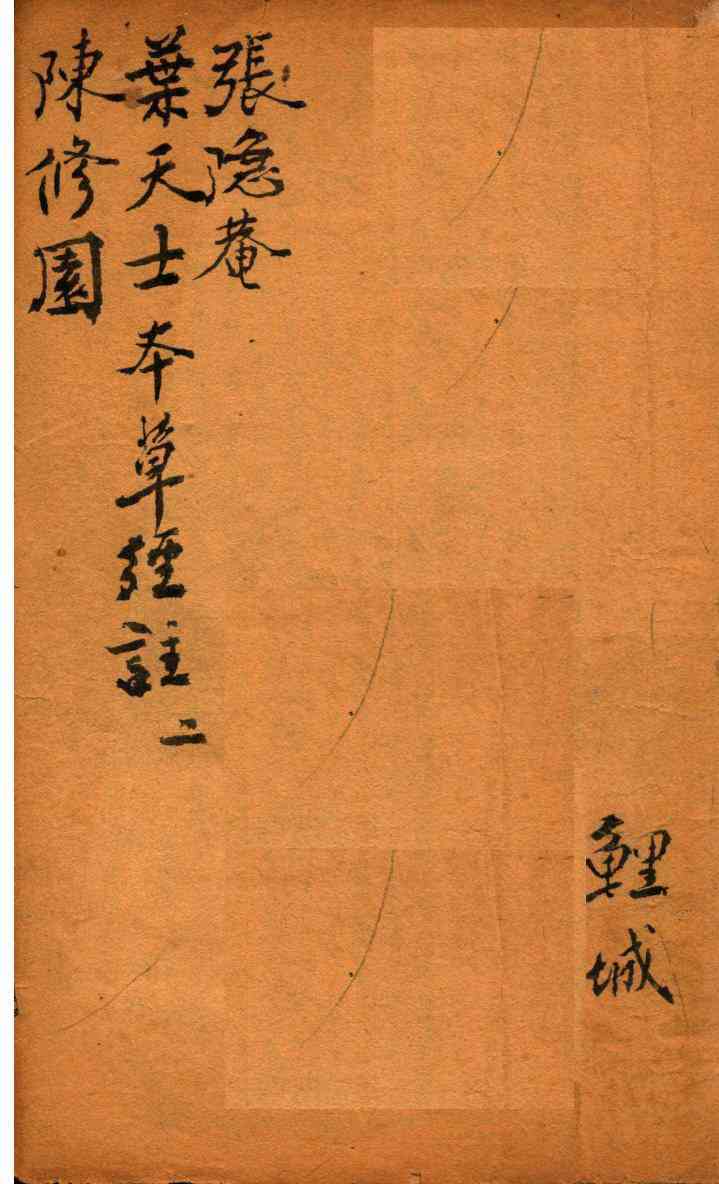 張隐菴
葉天士本草經註 二
陳修園
鯉城